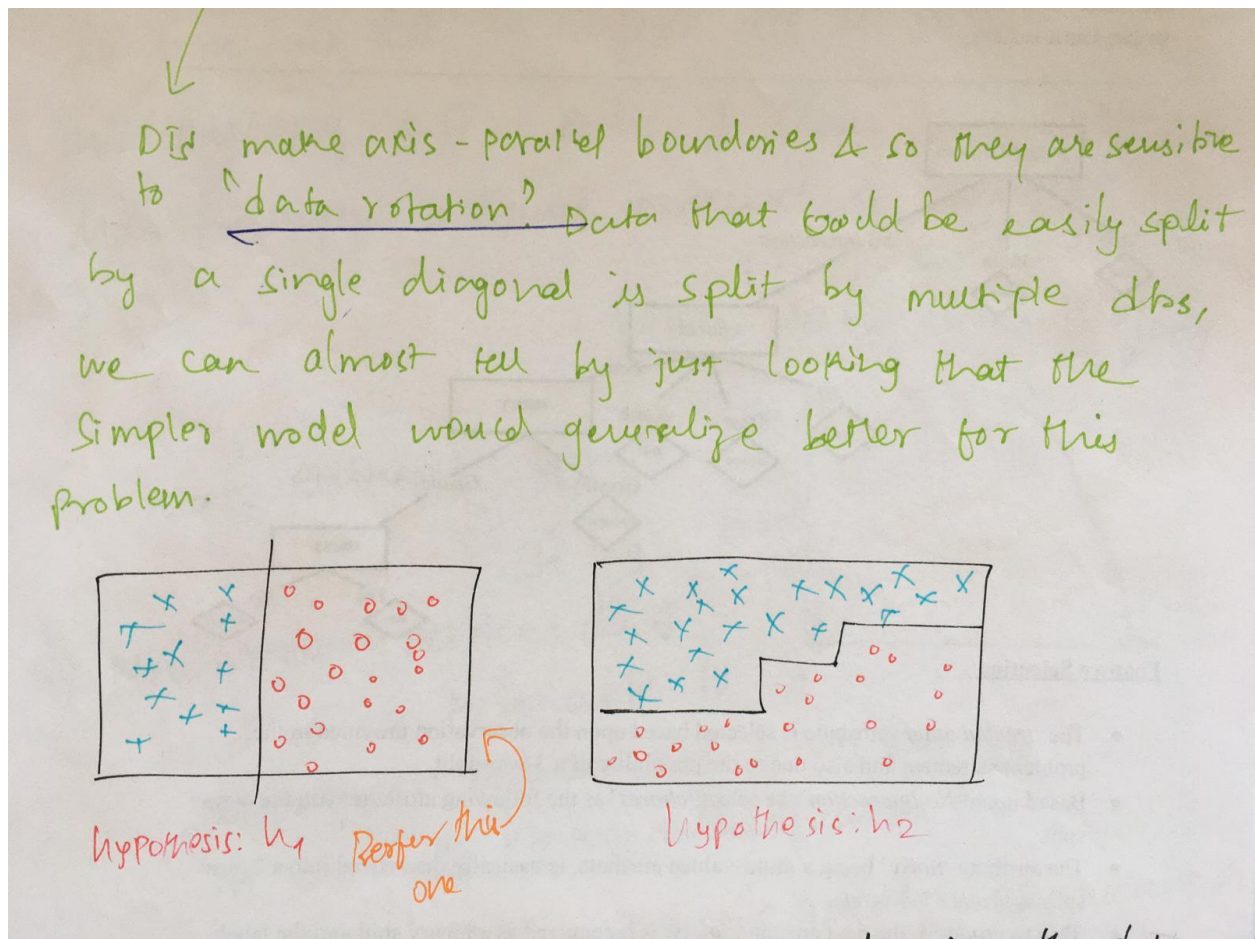 DTs make axis-parallel boundaries & so they are sensible
to "data rotation". Data that could be easily split
by a single diagonal is split by multiple dbs,
we can almost tell by just looking that the
simpler model would generalize better for this
problem.
hypothesis: h1
Perfer this
one
hypothesis: h2